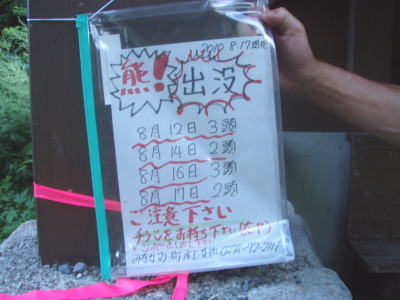 2010.8.17現在
熊!出没
8月12日 3頭
8月14日 2頭
8月16日 3頭
8月17日 2頭
ご注意下さい
お持ち下さい
みなかみ町水上支所 0278-72-2111